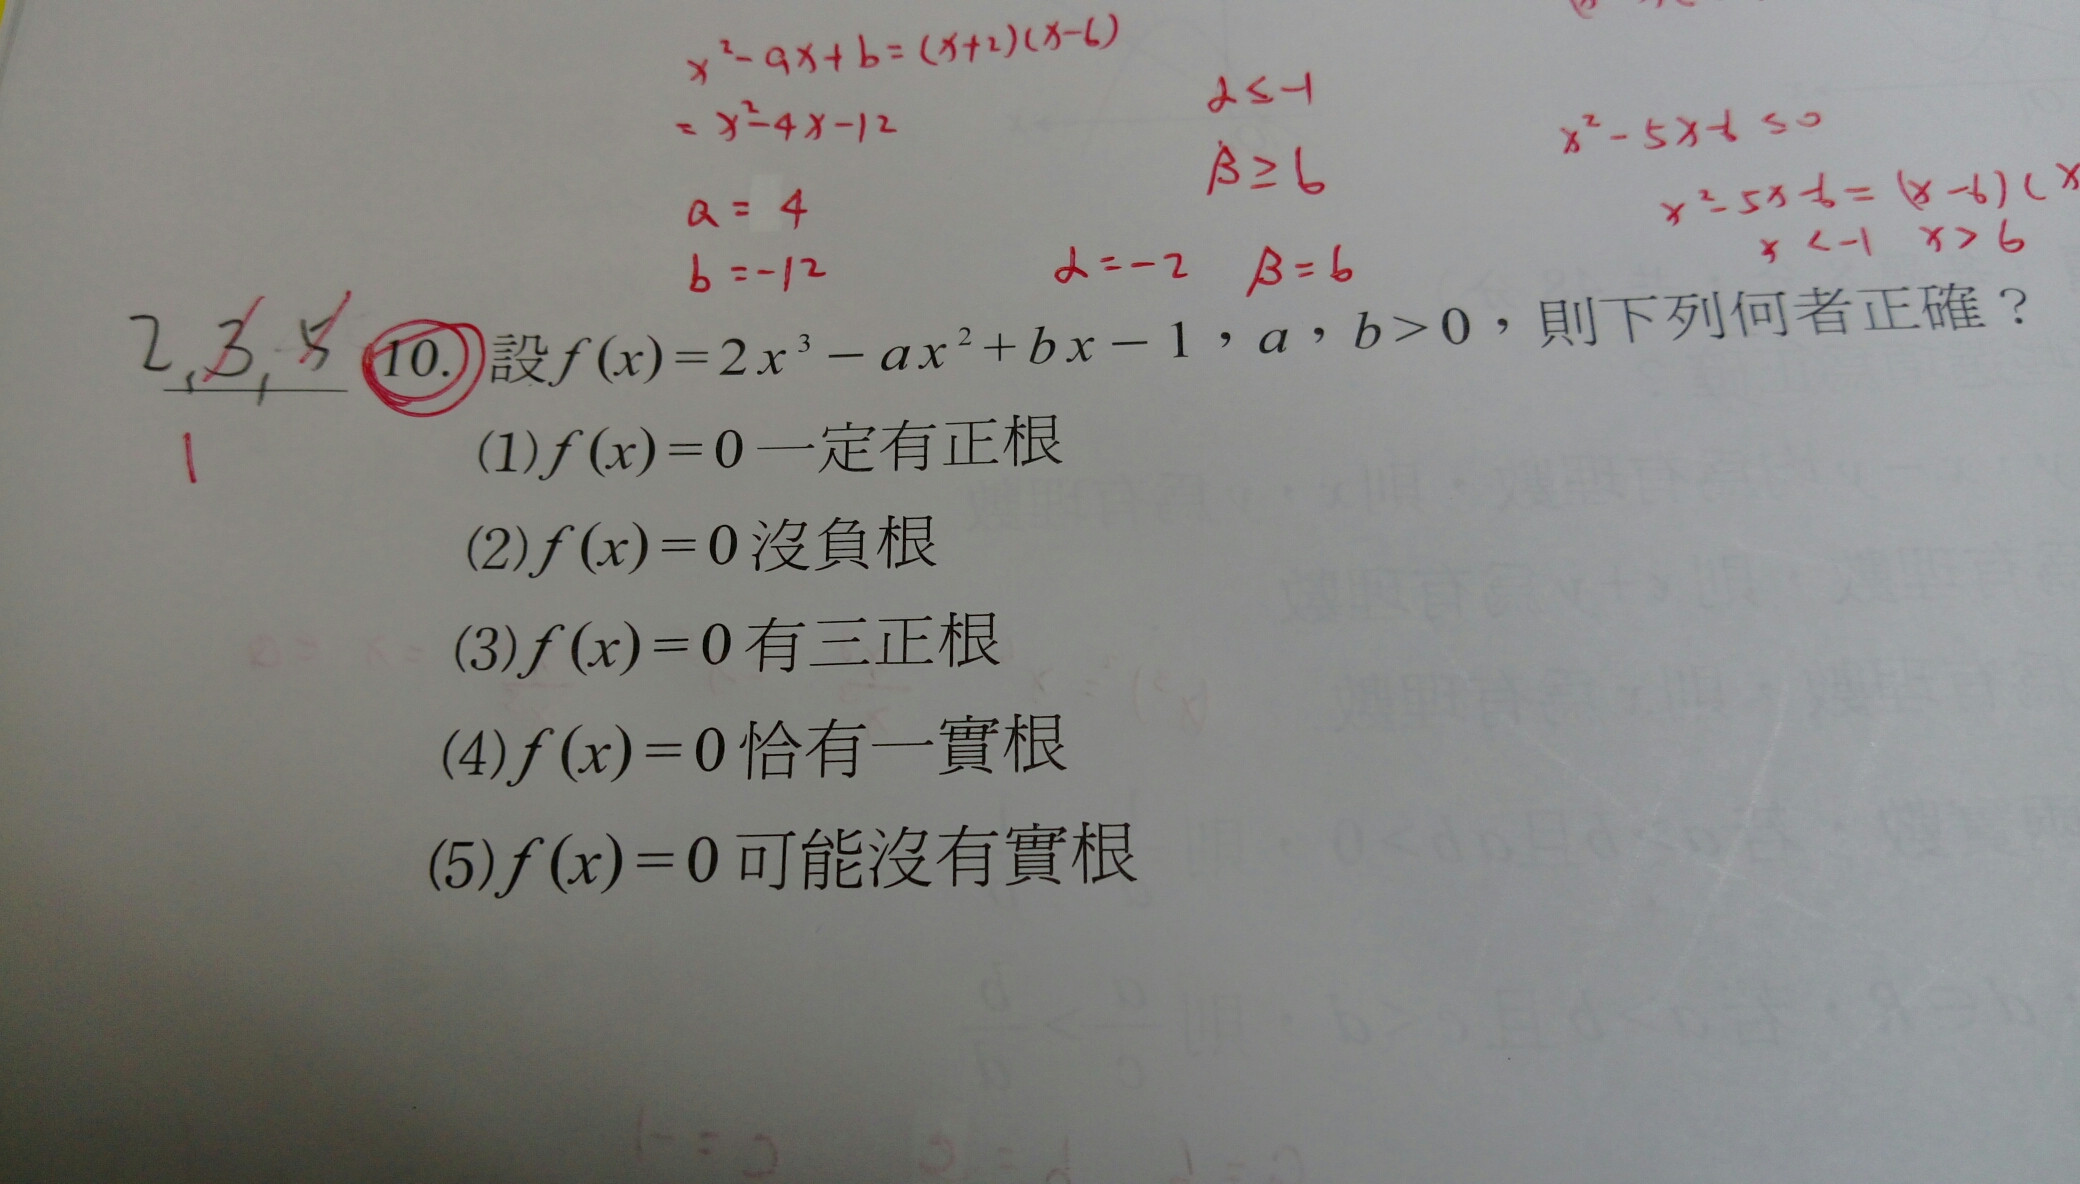 x²-ax+b=(x+2)(x-6)
= x²-4x-12
a = 4
b =-12
α≤-1
β≥6
α=-2 β=6
x²-5x-6≤0
x²-5x-6=(x-6)(x
x<-1 x>6
2,3,5
1
10. 設f(x)=2x³-ax²+bx-1,a,b>0,則下列何者正確?
(1)f(x)=0一定有正根
(2)f(x)=0沒負根
(3)f(x)=0有三正根
(4)f(x)=0恰有一實根
(5)f(x)=0可能沒有實根